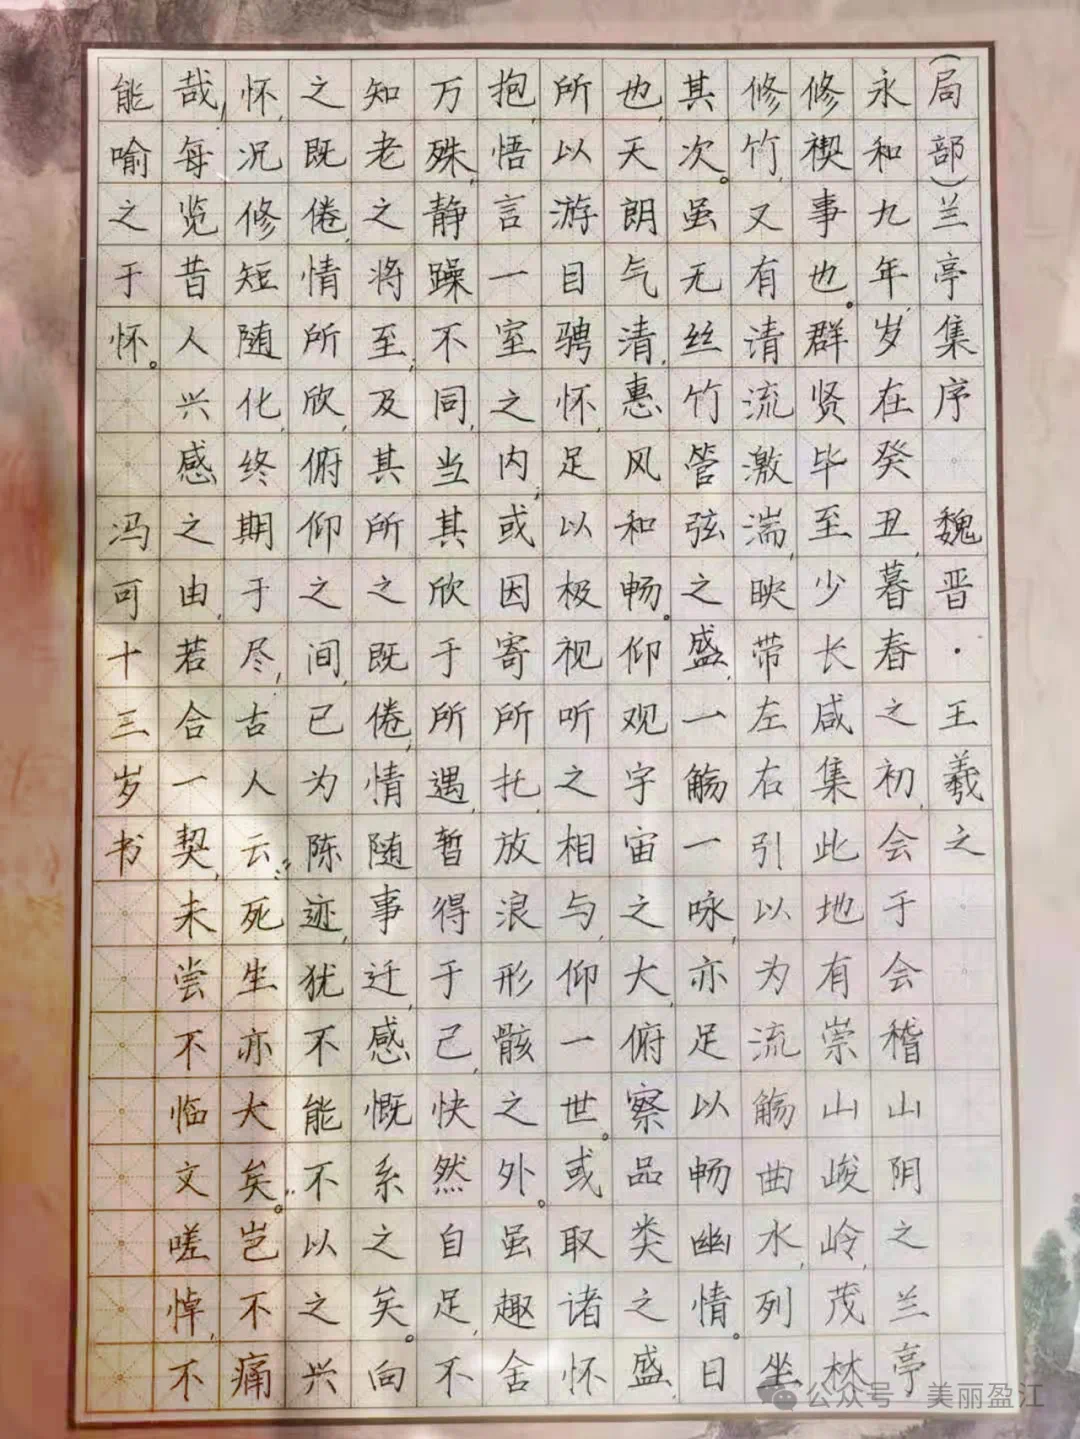 (局部)兰亭集序 魏晋·王羲之
永和九年,岁在癸丑,暮春之初,会于会稽山阴之兰亭
修禊事也。群贤毕至少长咸集此地有崇山峻岭,茂林
修竹,又有请流激湍,映带左右引以为流觞曲水,列坐
其次。虽无丝竹管弦之盛,一觞一咏,亦足以畅幽情。日
也,天朗气清,惠风和畅。仰观宇宙之大,俯察品类之盛,
所以游目骋怀,足以极视听之相与,仰一世。或取诸怀
抱,悟言一室之内,或因寄所托,放浪形骸之外。虽趣舍
万殊,静躁不同,当其欣于所遇,暂得于己,快然自足,不
知老之将至,及其所之既倦,情随事迁,感慨系之矣。向
之既倦,情所欣,俯仰之间,已为陈迹,犹不能不以之兴
怀,况修短随化,终期于尽,古人云:“死生亦大矣。”岂不痛
哉,每览昔人兴感之由,若合一契,未尝不临文嗟悼,不
能喻之于怀。 冯可十三岁书
公众号 美丽盈江